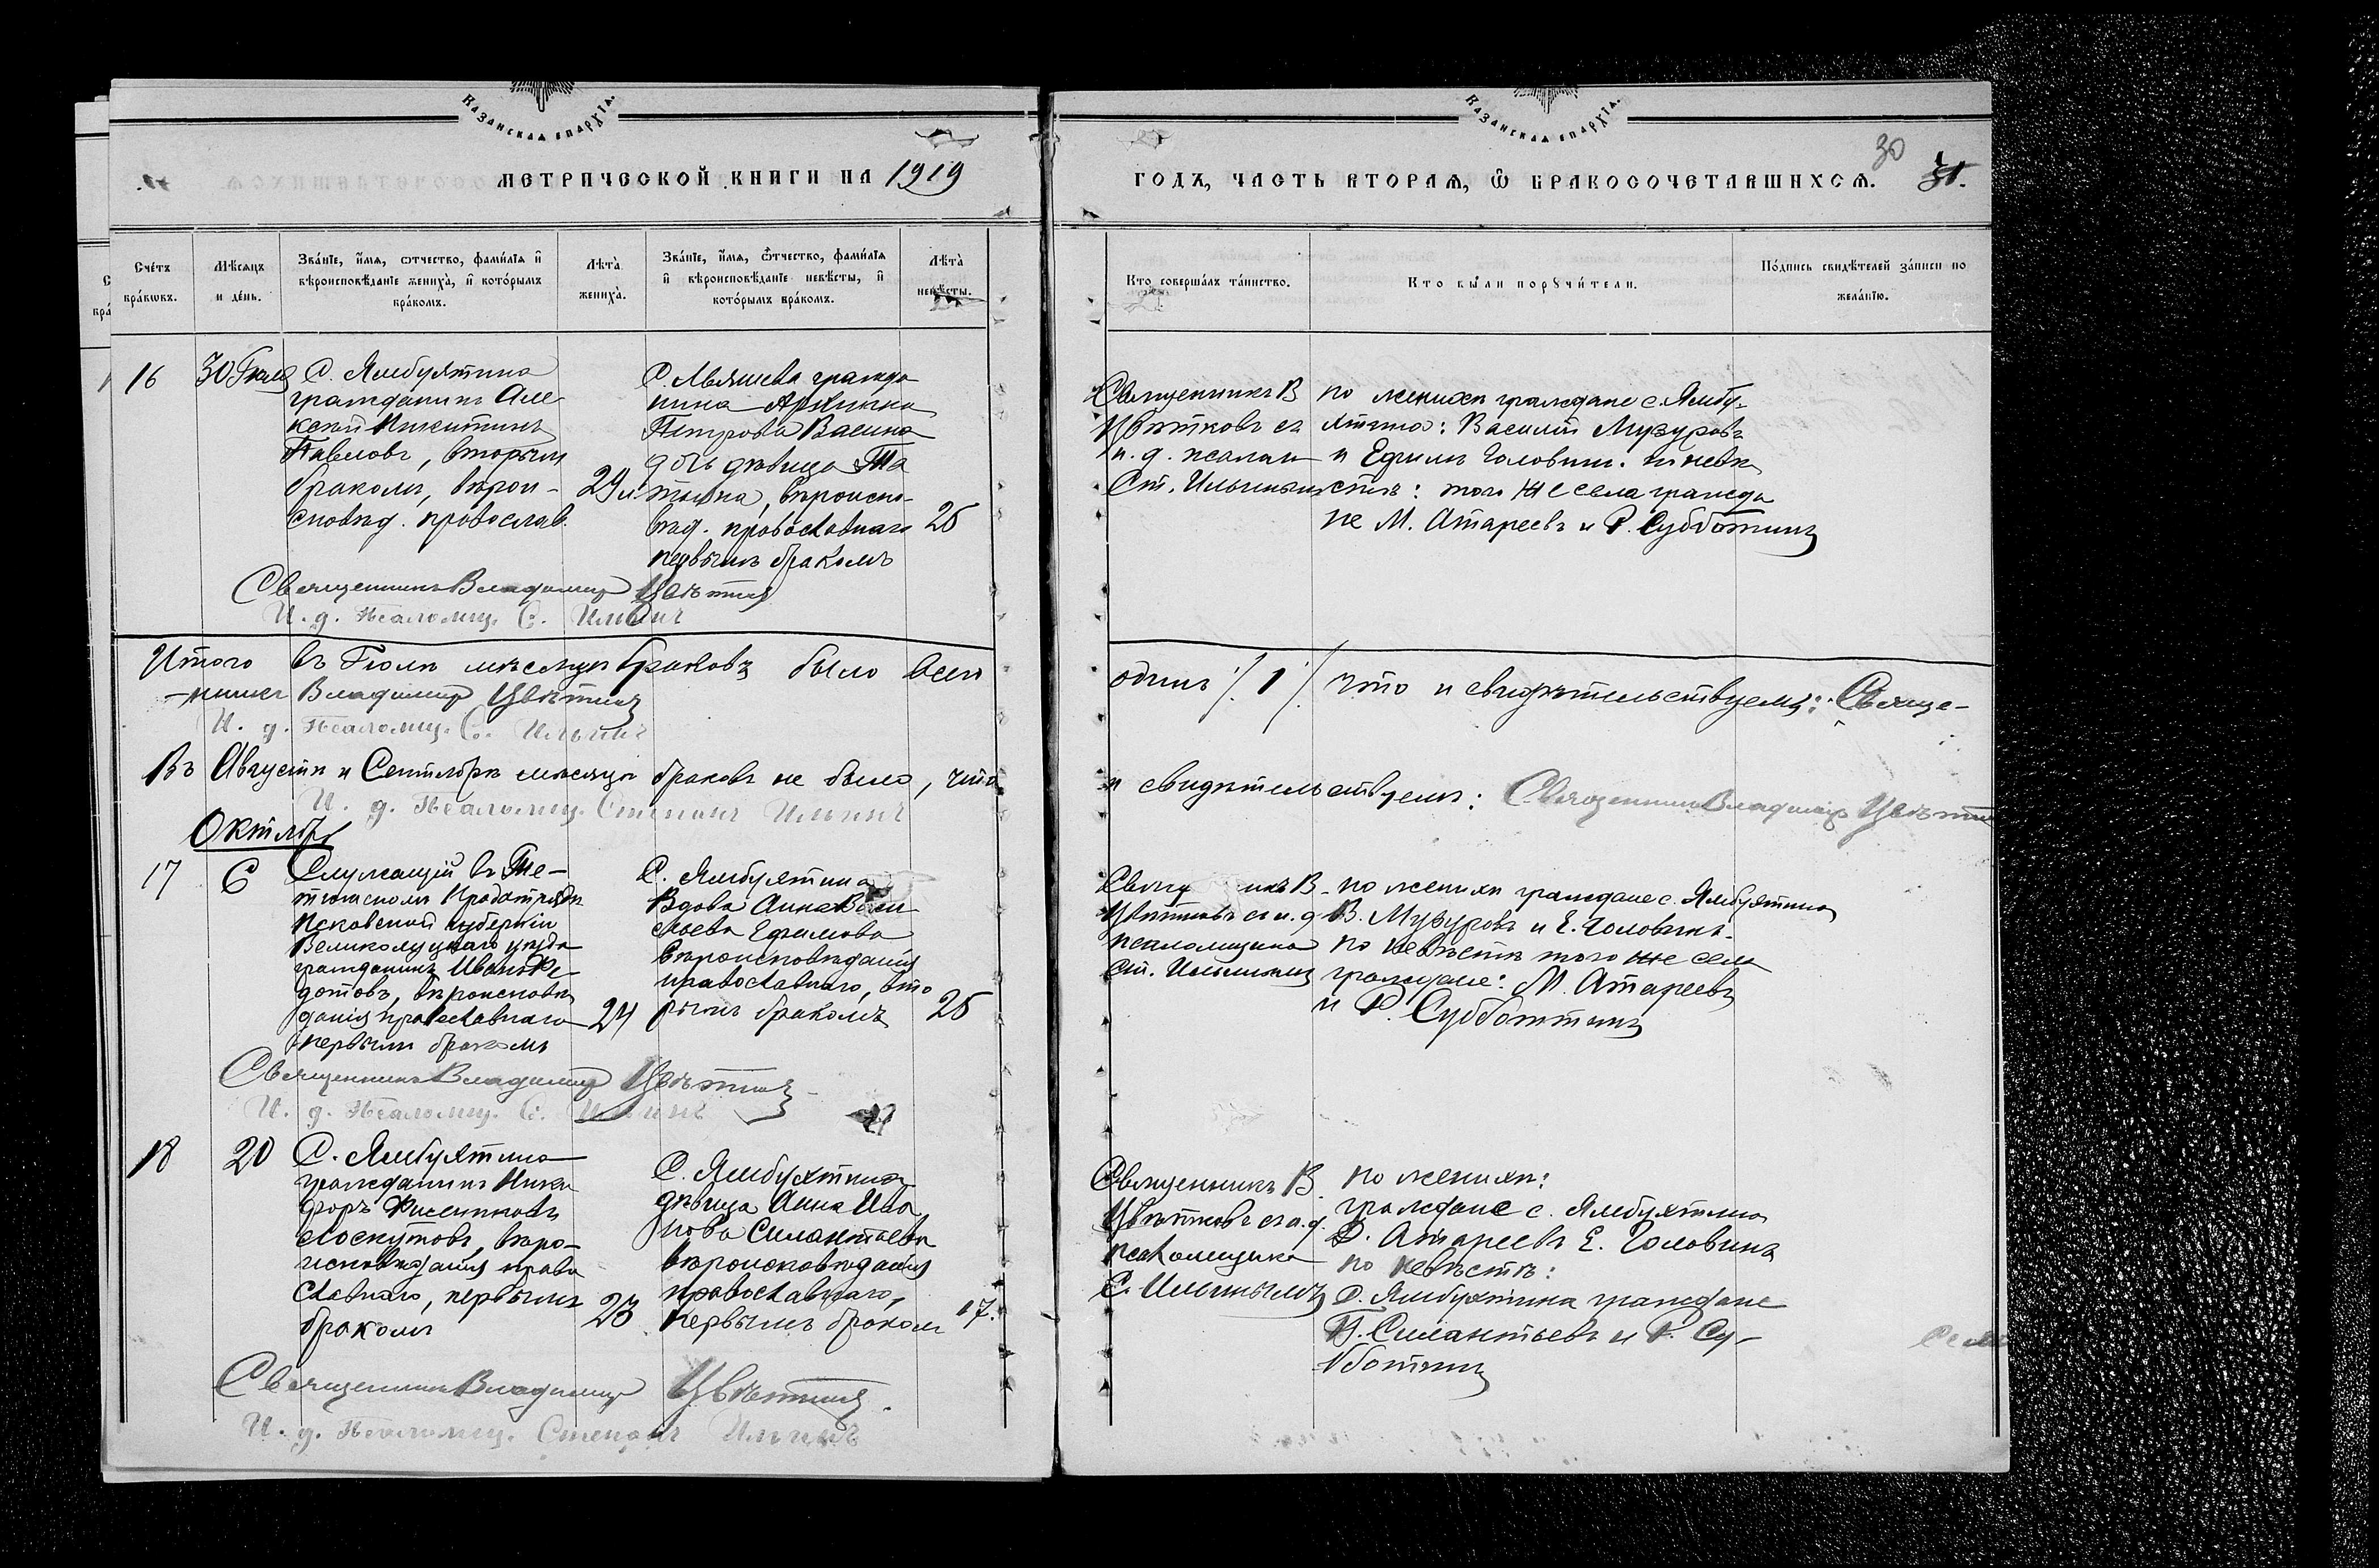 Казанская епархїа.
Казанская епархїа.
МЕТРИЧЕСКОЙ КНИГИ НА 1919
ГОДЪ, ЧАСТЬ ВТОРАѦ, Ѿ БРАКОСОЧЕТАВШИХСѦ.
30
31.
Счетъ браковъ.
Мѣсяцъ и день.
Званїе, имя, отчество, фамилїя и
вѣроисповѣданїе жениха, и которымъ
бракомъ.
Лѣта жениха.
Званїе, имя, отчество, фамилїя
и вѣроисповѣданїе невѣсты, и
которымъ бракомъ.
Лѣта невѣсты.
Кто совершалъ таинство.
Кто были поручители.
Подпись свидѣтелей записи по
желанїю.
16
30 Іюля
С. Ямбухтина
гражданинъ Але
ксѣй Никитинъ
Павловъ, вторым
бракомъ, вѣрои-
сповѣд. православ.
29 л.
гражда
нина
Петрова Васина
дочь дѣвица Та
тьяна, вѣроиспо-
вѣд. православнаго
первымъ бракомъ
25
Священникъ В
Цвѣтковъ съ
и. д. псалом
Ст. Ильинымъ
по женихѣ граждане с. Ямбу-
хтина: Василій Музуровъ
и Ефимъ Головин. по невѣ
стѣ: того же села гражда
не М. Атареевъ и Р. Субботинъ
Священникъ Владимир Цвѣтков
И. д. Псаломщ. С. Ильинъ
Итого въ Іюлѣ мѣсяцѣ браковъ было всего
одинъ /. 1 /. что и свидѣтельствуемъ: Свяще-
-нникъ Владимир Цвѣтков
И. д. Псаломщ. С. Ильинъ
Въ Августѣ и Сентябрѣ мѣсяцѣ браковъ не было, что
и свидѣтельствуемъ: Священникъ Владимір Цвѣтк
И. д. Псаломщ. Степанъ Ильинъ
Октябрь
17
6
Служащій въ Те-
тюшскомъ Продотрядѣ
Псковской губерніи
Великолуцкаго уѣзда
гражданинъ Иванъ Фе-
дотовъ, вѣроисповѣ
данія православнаго
первымъ бракомъ
24
С. Ямбухтина
Вдова Анна Васи
льева Ефимова
вѣроисповѣданія
православнаго, вто
рымъ бракомъ
25
Цвѣтковъ съ и. д
псаломщика
Ст. Ильинымъ
по женихѣ граждане с. Ямбухтина
В. Музуровъ и Е. Головинъ.
по невѣстѣ того же села
граждане: М. Атареевъ
и Р. Субботинъ
Священникъ Владимир Цвѣтков
И. д. Псаломщ. С. Ильинъ
18
20
С. Ямбухтина
гражданинъ Ники
форъ
Лоскутовъ, вѣро-
исповѣданія право
славнаго, первымъ
бракомъ
23
С. Ямбухтина
дѣвица Анна Ива
нова Силантьева
вѣроисповѣданія
православнаго,
первымъ бракомъ
17.
Священникъ В.
Цвѣтковъ съ и. д.
псаломщика
С. Ильинымъ
по женихѣ:
граждане с. Ямбухтина
Атареевъ Е. Головинъ
по невѣстѣ:
С. Ямбухтина граждане
Силантьевъ и Р. Су-
бботинъ
Священникъ Владимир Цвѣтков.
И. д. Псаломщ. Степанъ Ильинъ